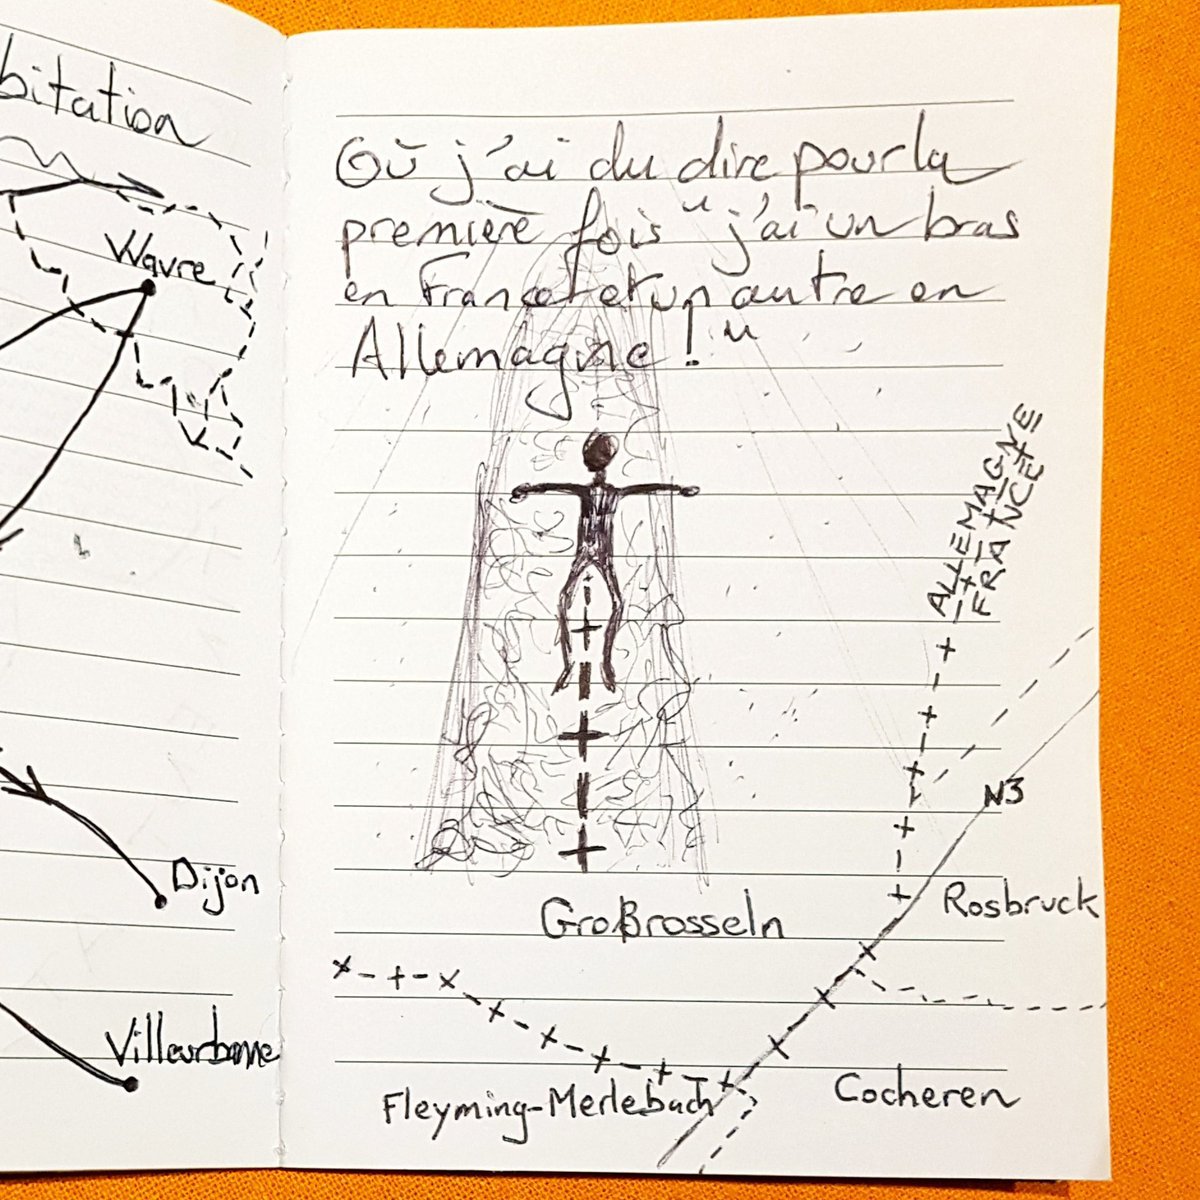 bitation
Wavre
Dijon
Villeurbanne
Où j'ai du dire pour la
première fois "j'ai un bras
en France et un autre en
Allemagne !"
ALLEMAGNE
FRANCE
N3
Rosbruck
Großrosseln
Fleyming-Merlebach
Cocheren